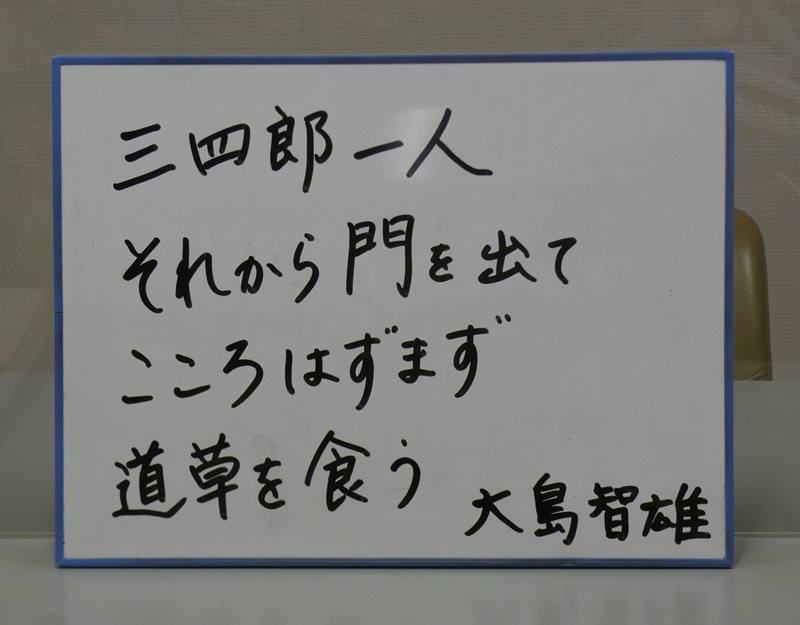 三四郎一人
それから門を出て
こころはずまず
道草を食う
大島智雄